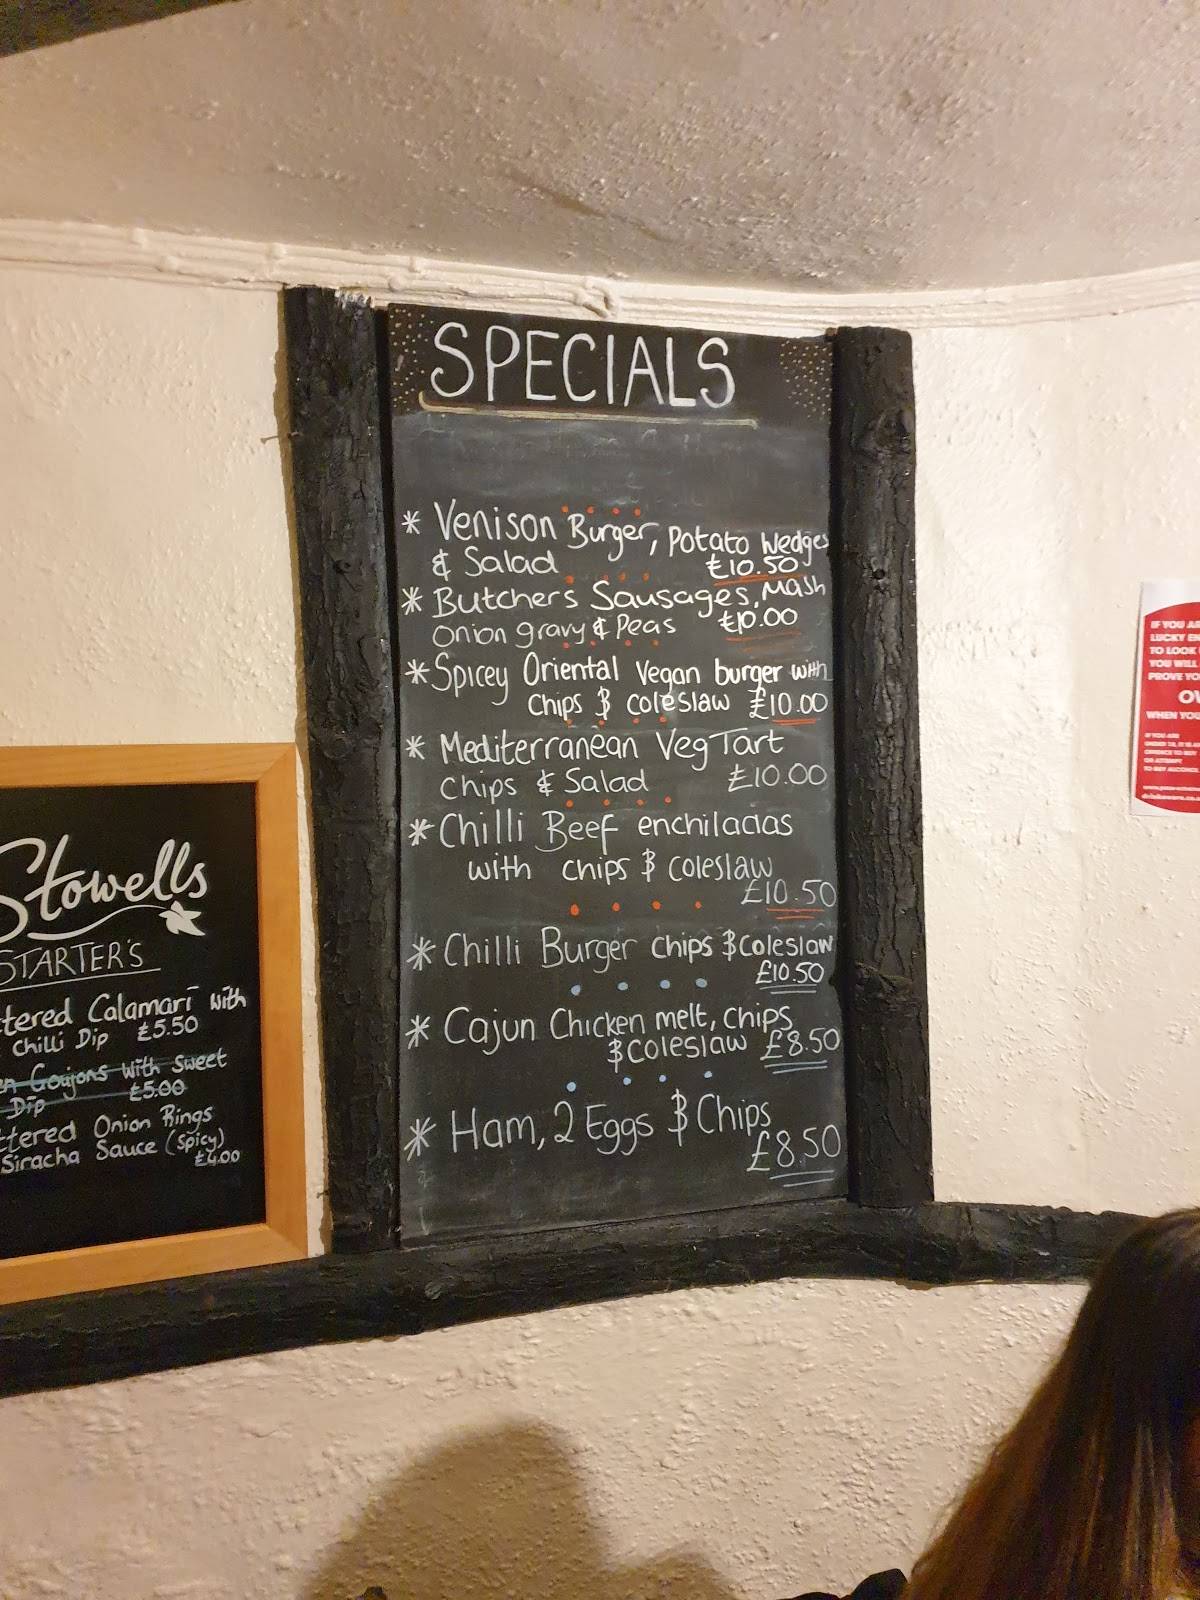 SPECIALS
* Venison Burger, Potato Wedges
& Salad £10.50
* Butchers Sausages, Mash
Onion gravy & Peas £10.00
* Spicey Oriental Vegan burger with
Chips & coleslaw £10.00
* Mediterranean Veg Tart
Chips & Salad £10.00
* Chilli Beef enchiladas
with chips & coleslaw
£10.50
* Chilli Burger chips & Coleslaw
£10.50
* Cajun Chicken melt, chips
& Coleslaw £8.50
* Ham, 2 Eggs & Chips
£8.50
Stowells
STARTER'S
tered Calamari with
Chilli Dip £5.50
en Goujons with Sweet
Dip £5.00
ttered Onion Rings
Siracha Sauce (Spicy)
£4.00
IF YOU A
LUCKY EN
TO LOOK
YOU WILL
PROVE YO
WHEN YOU
IF YOU ARE